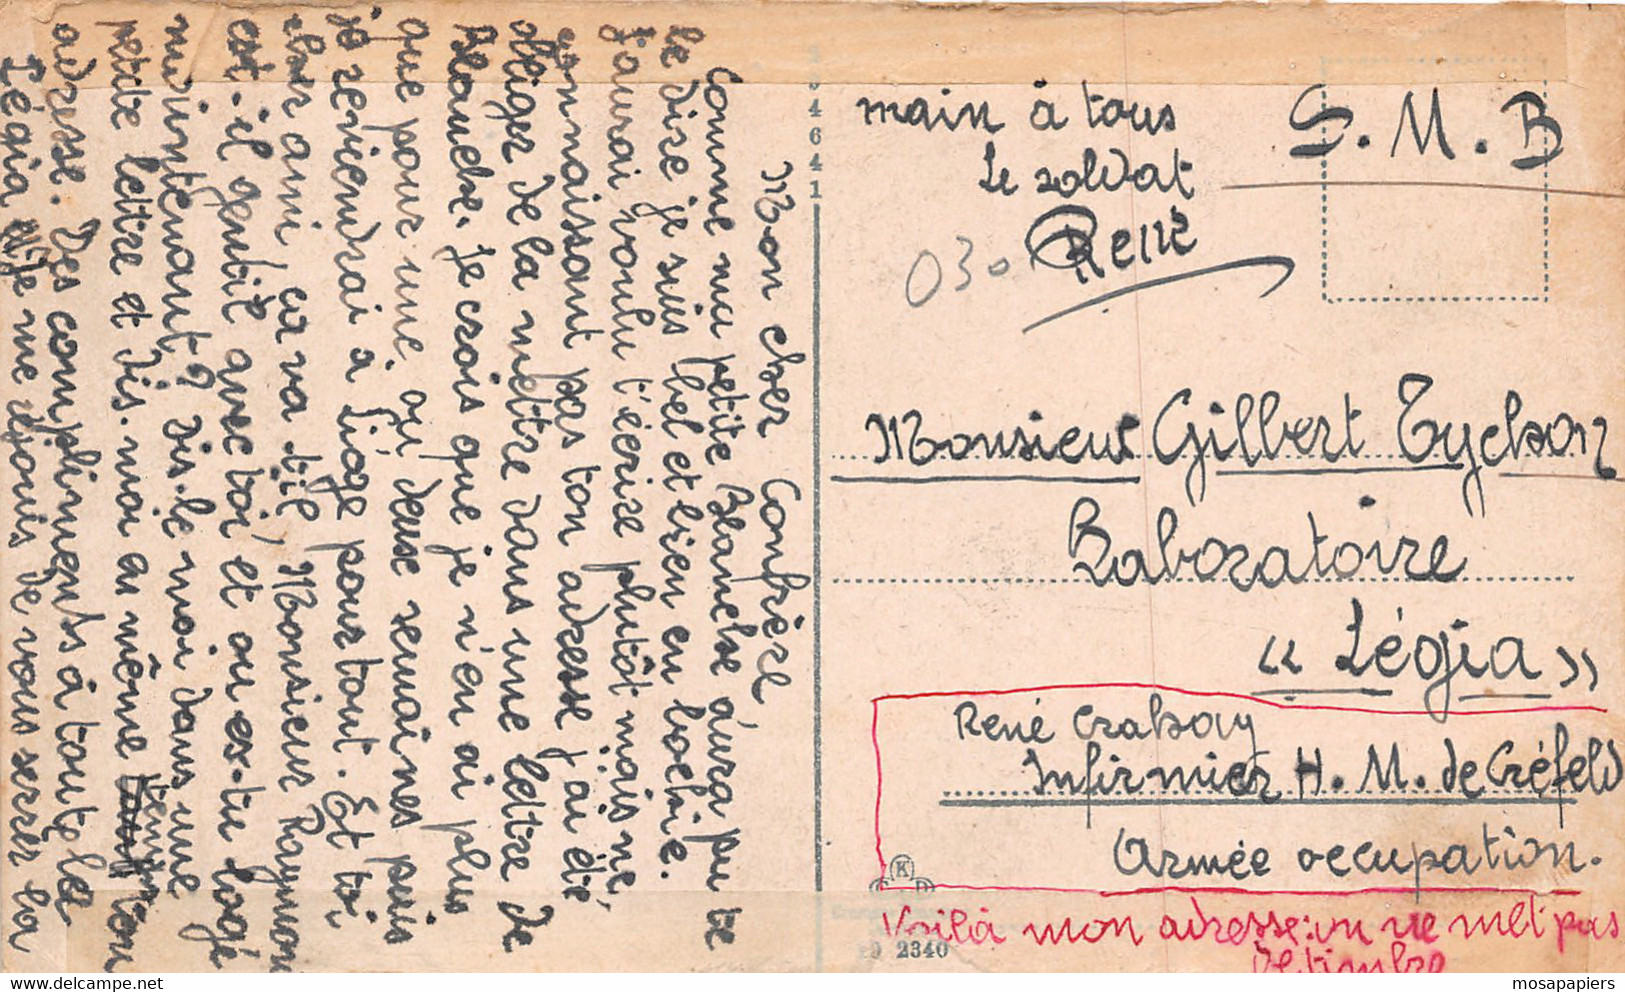 Mon cher Confrère,
Comme ma petite Blanche aura pu te
le dire je suis bel et bien en boche.
J'aurai voulu t'écrire plutôt mais ne,
connaissant pas ton adresse j'ai été
obliger de la mettre dans une lettre de
Blanche. Je crois que je n'en ai plus
que pour une ou deuse semaines puis
je reviendrai à Liège pour tout. Et toi
cher ami ça va-t-il, Monsieur Raymon
est-il gentil avec toi et ou es-tu logé
maintenant? dis-le moi dans une
petite lettre et dis-moi en même temps ton
adresse. Des compliments à toute la
Légia et je me réjouis de vous serrer la
main à tous
Le soldat
René
030
S. M. B
234641
Monsieur Gilbert Tychon
Laboratoire
« Légia »
René Crahay
Infirmier H. M. de Créfeld
Armée occupation.
K
Voilà mon adresse: on ne met pas
de timbre
2340
mosapapiers